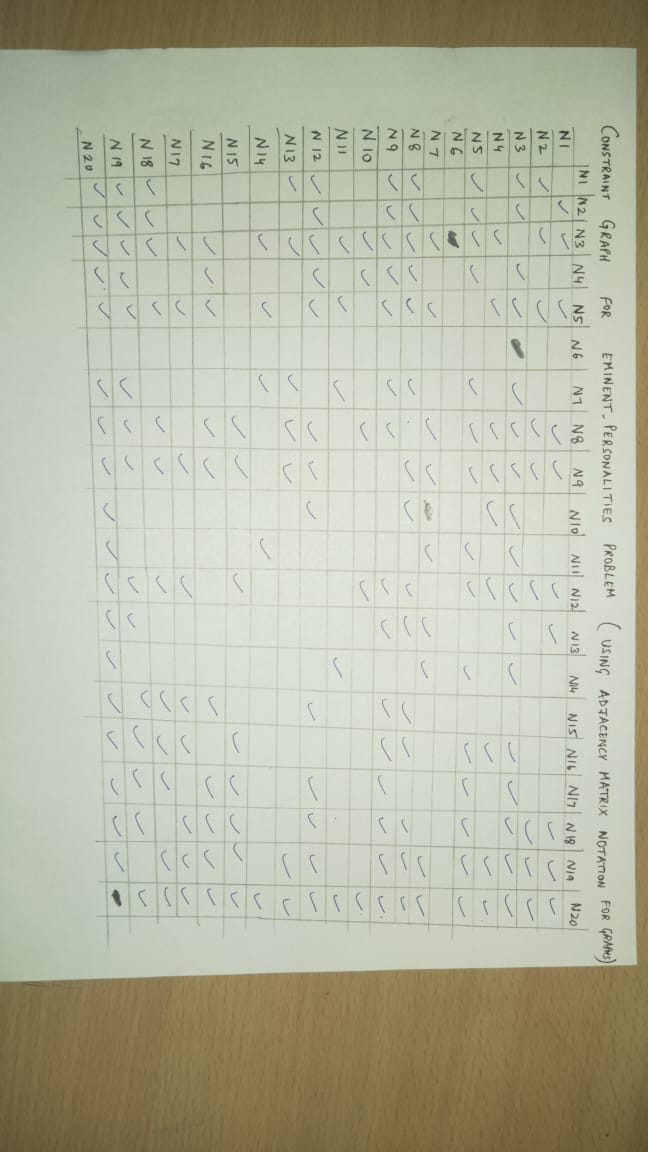 CONSTRAINT GRAPH FOR EMINENT-PERSONALITIES PROBLEM (USING ADJACENCY MATRIX NOTATION FOR GRAPHS)
N1 N2 N3 N4 N5 N6 N7 N8 N9 N10 N11 N12 N13 N14 N15 N16 N17 N18 N19 N20
N1
N2
N3
N4
N5
N6
N7
N8
N9
N10
N11
N12
N13
N14
N15
N16
N17
N18
N19
N20